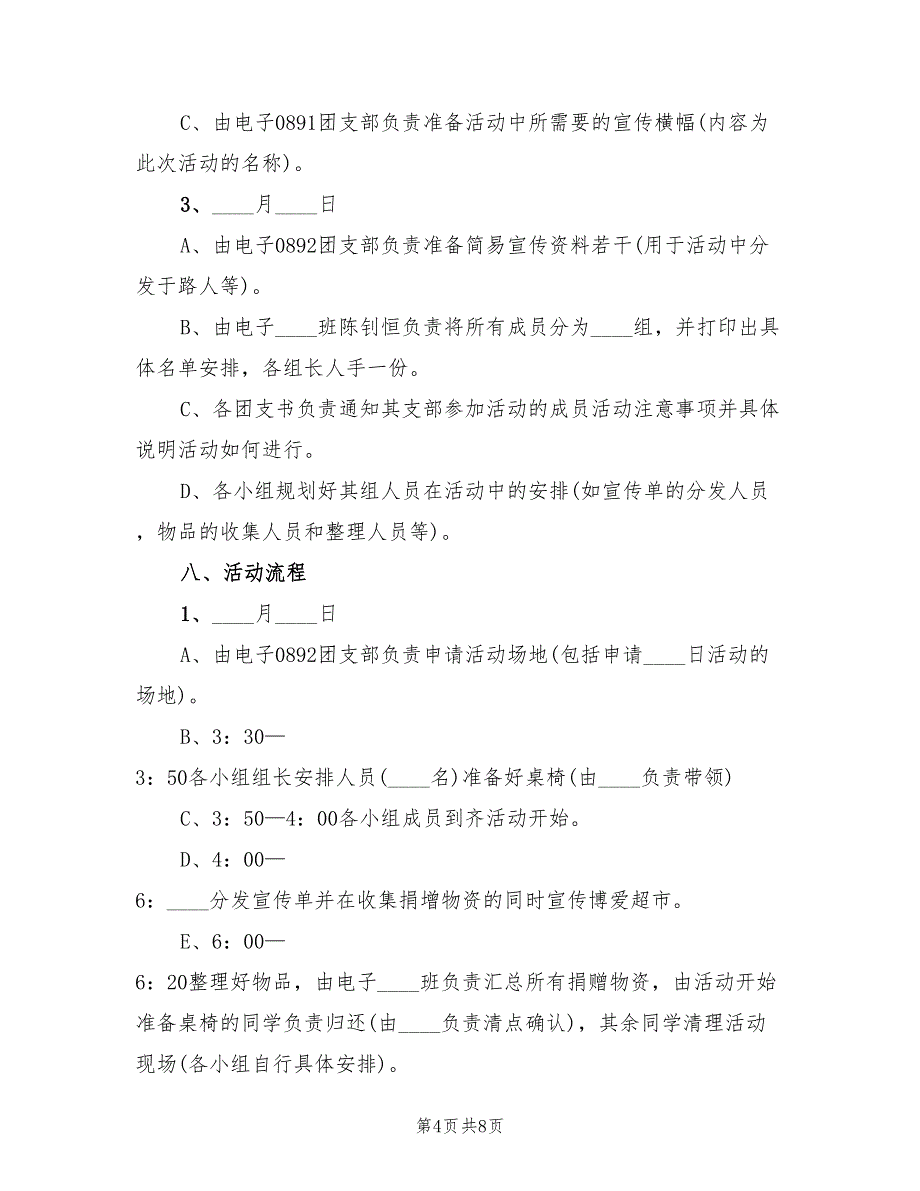 C、由电子0891团支部负责准备活动中所需要的宣传横幅(内容为
此次活动的名称)。
3、____月____日
A、由电子0892团支部负责准备简易宣传资料若干(用于活动中分
发于路人等)。
B、由电子____班陈钊恒负责将所有成员分为____组，并打印出具
体名单安排，各组长人手一份。
C、各团支书负责通知其支部参加活动的成员活动注意事项并具体
说明活动如何进行。
D、各小组规划好其组人员在活动中的安排(如宣传单的分发人员
，物品的收集人员和整理人员等)。
八、活动流程
1、____月____日
A、由电子0892团支部负责申请活动场地(包括申请____日活动的
场地)。
B、3：30—
3：50各小组组长安排人员(____名)准备好桌椅(由____负责带领)
C、3：50—4：00各小组成员到齐活动开始。
D、4：00—
6：____分发宣传单并在收集捐增物资的同时宣传博爱超市。
E、6：00—
6：20整理好物品，由电子____班负责汇总所有捐赠物资，由活动开始
准备桌椅的同学负责归还(由____负责清点确认)，其余同学清理活动
现场(各小组自行具体安排)。
第4页 共8页